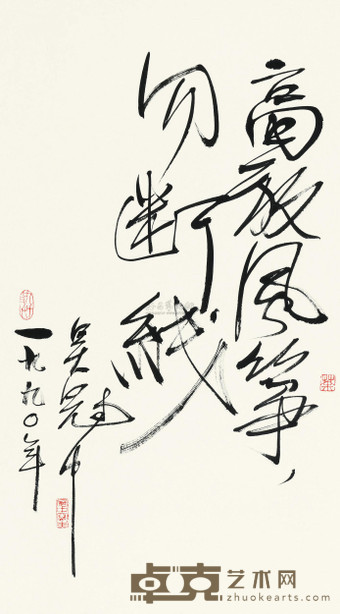 高放风筝，
勿断线
吴冠中
一九九〇年
卓克艺术网
zhuokearts.com